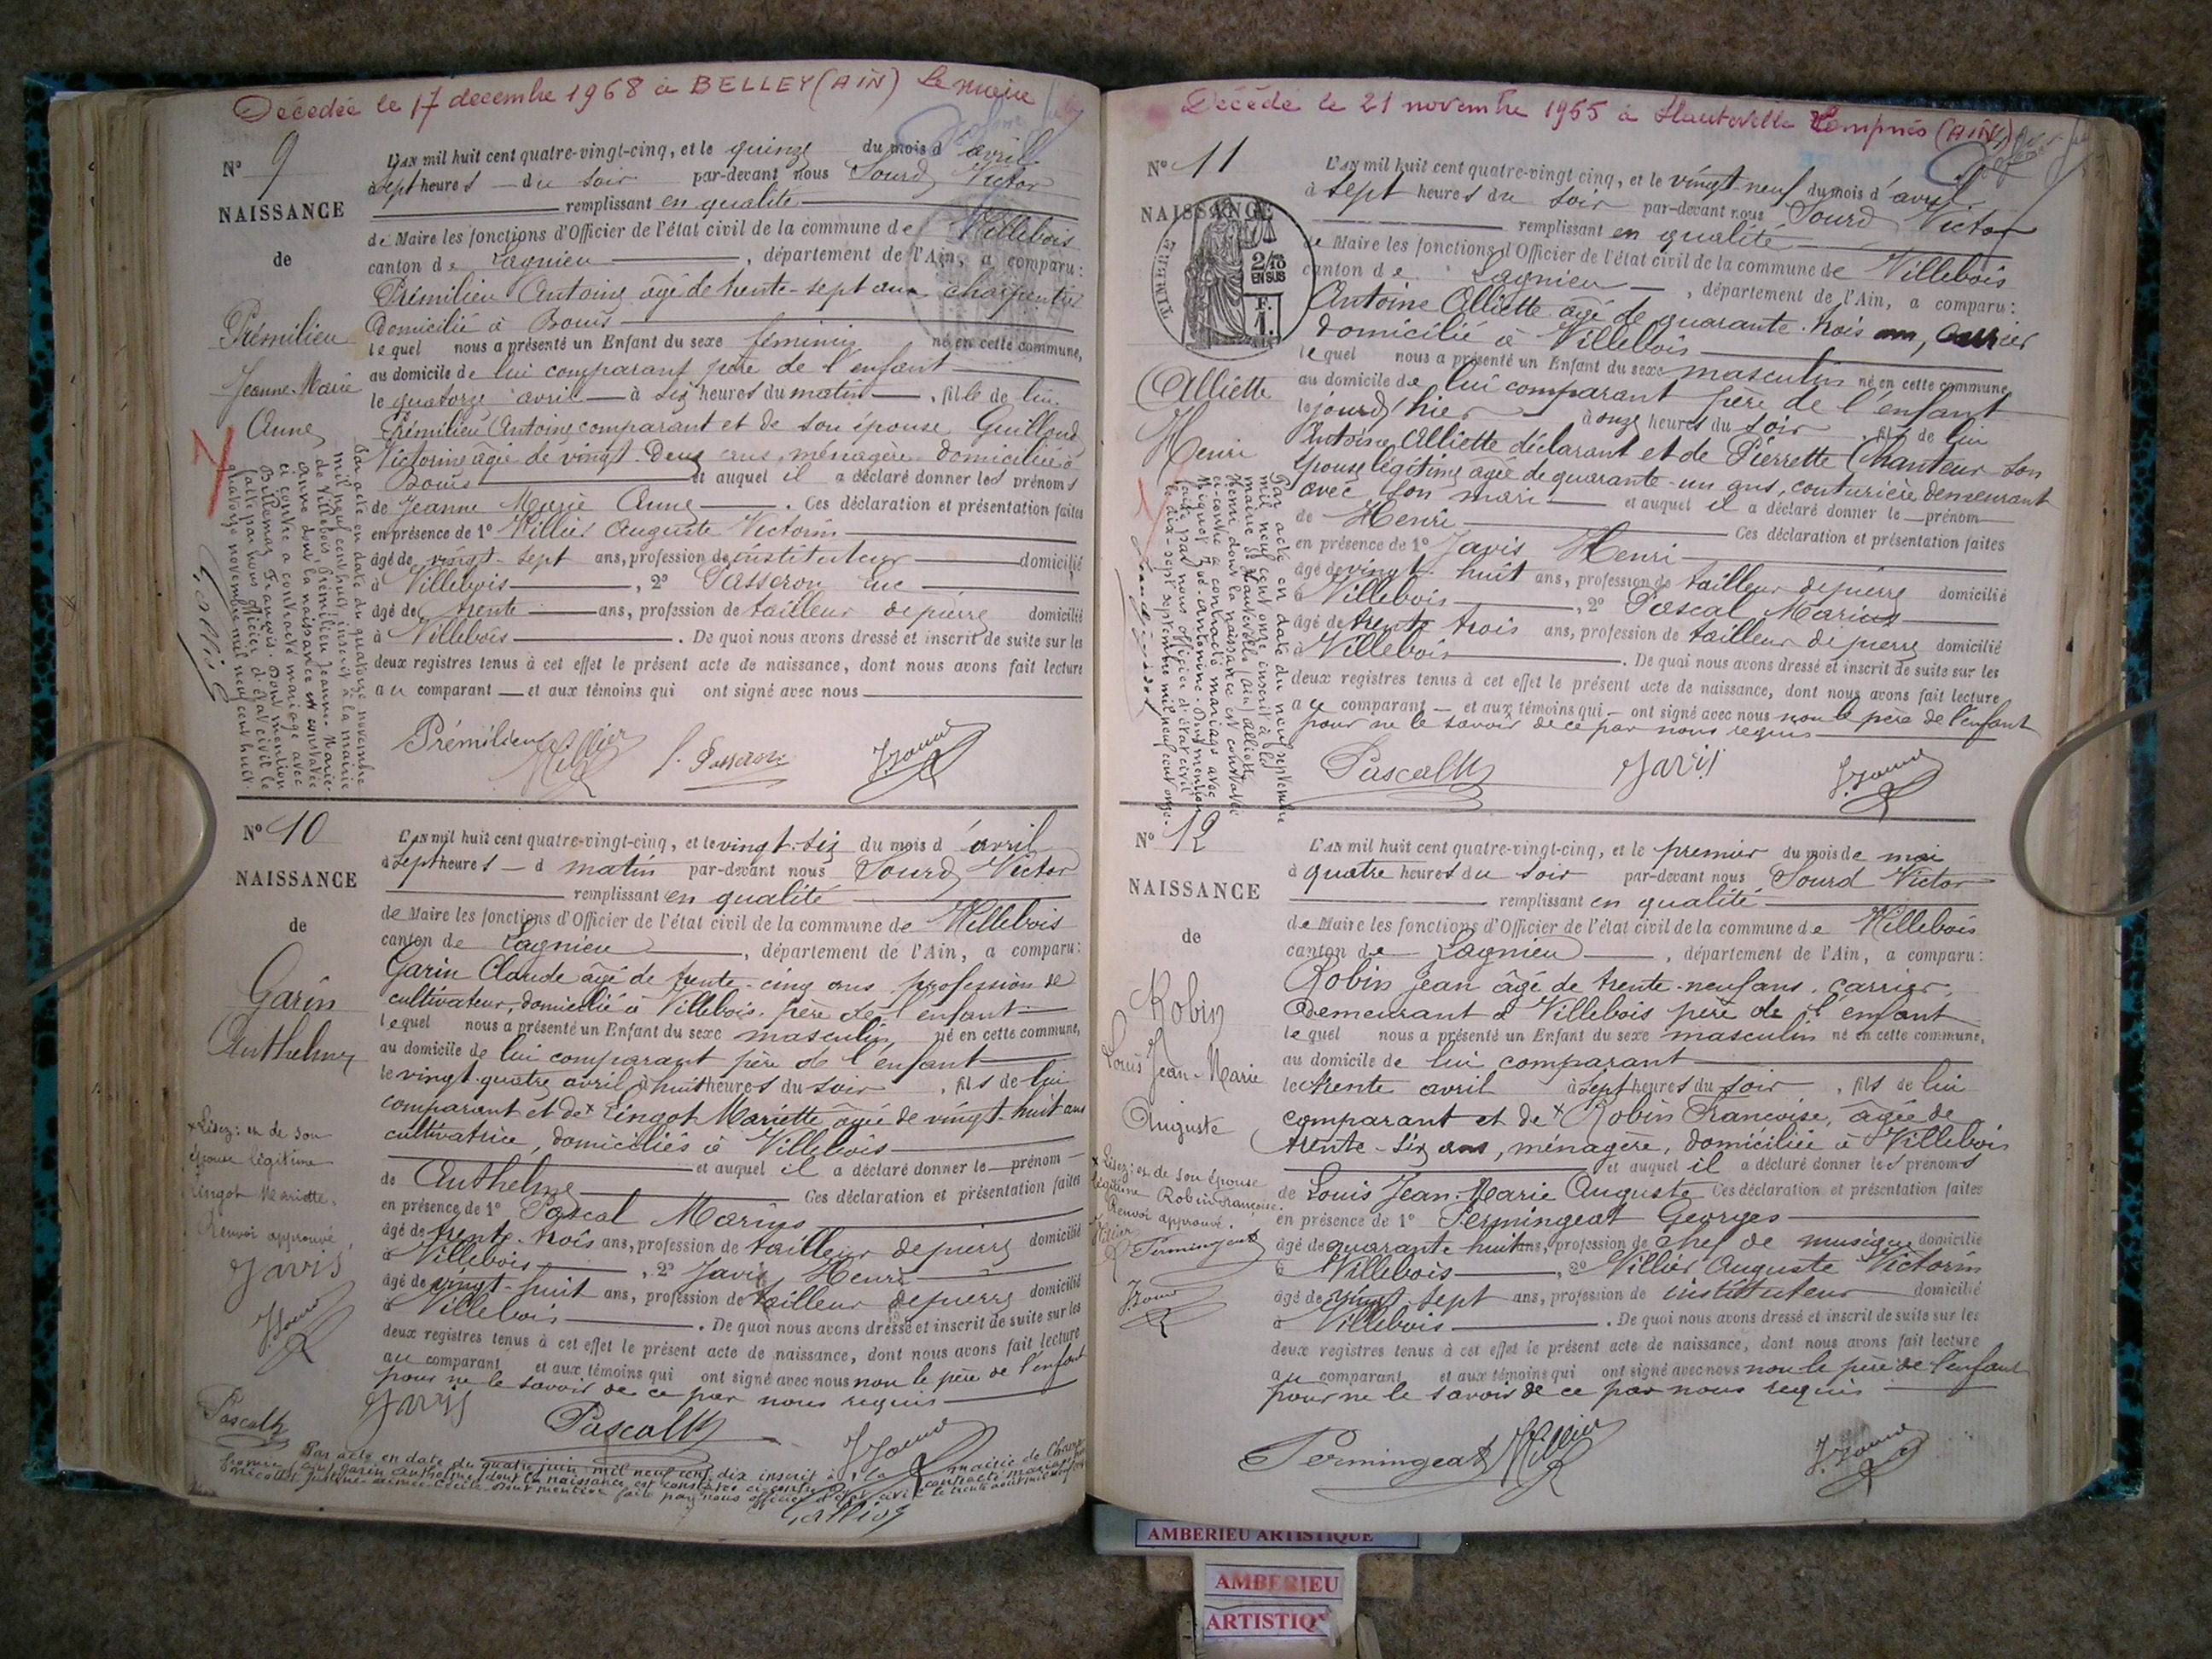 Décédée le 17 decembre 1968 à BELLEY (AIN) Le maire
N° 9
NAISSANCE
de
Prémilieu
Jeanne-Marie
Anne
L'AN mil huit cent quatre-vingt-cinq, et le quinze du mois d'avril
à sept heures — du soir par-devant nous Sourd Victor
remplissant en qualité
de Maire les fonctions d'Officier de l'état civil de la commune de Villebois
canton de Lagnieu, département de l'Ain, a comparu:
Prémilieu Antoine âgé de trente-sept ans charpentier
Domicilié à Bouis
lequel nous a présenté un Enfant du sexe féminin né en cette commune,
au domicile de lui comparant père de l'enfant
le quatorze avril — à six heures du matin —, fille de lui
Prémilieu Antoine comparant et de son épouse Guilloud
Victorine âgée de vingt-deux ans, ménagère domiciliée à
Bouis et auquel il a déclaré donner les prénoms
de Jeanne Marie Anne. Ces déclaration et présentation faites
en présence de 1° Villier Auguste Victorin
âgé de vingt-sept ans, profession de instituteur domicilié
à Villebois, 2° Passeron Luc
âgé de trente ans, profession de tailleur de pierre domicilié
à Villebois. De quoi nous avons dressé et inscrit de suite sur les
deux registres tenus à cet effet le présent acte de naissance, dont nous avons fait lecture
au comparant — et aux témoins qui ont signé avec nous
Par acte en date du quatorze novembre
mil neuf cent huit, inscrit à la mairie
de Villebois, Prémilieu Jeanne-Marie-
Anne dont la naissance est constatée
ci-contre a contracté mariage avec
Bellemaz François. Dont mention
faite par nous officier d'état civil le
quatorze novembre mil neuf cent huit.
Gallioz
Prémilieu Villier L. Passeron V. Sourd
N° 10
NAISSANCE
de
Garin
Anthelme
L'AN mil huit cent quatre-vingt-cinq, et le vingt-six du mois d'avril
à sept heures — d matin par-devant nous Sourd Victor
remplissant en qualité
de Maire les fonctions d'Officier de l'état civil de la commune de Villebois
canton de Lagnieu, département de l'Ain, a comparu:
Garin Claude âgé de trente-cinq ans profession de
cultivateur, domicilié à Villebois, père de l'enfant
lequel nous a présenté un Enfant du sexe masculin né en cette commune,
au domicile de lui comparant père de l'enfant
le vingt-quatre avril à huit heures du soir, fils de lui
comparant et de x Lingot Mariette âgée de vingt-huit ans
cultivatrice, domiciliés à Villebois
et auquel il a déclaré donner le prénom
de Anthelme Ces déclaration et présentation faites
en présence de 1° Pascal Marius
âgé de trente-trois ans, profession de tailleur de pierre domicilié
à Villebois, 2° Javis Henri
âgé de vingt-huit ans, profession de tailleur de pierre domicilié
à Villebois. De quoi nous avons dressé et inscrit de suite sur les
deux registres tenus à cet effet le présent acte de naissance, dont nous avons fait lecture
au comparant et aux témoins qui ont signé avec nous non le père de l'enfant
pour ne le savoir de ce par nous requis
x Lisez: et de son
épouse légitime
Lingot Mariette.
Renvoi approuvé,
Javis
V. Sourd
Pascal M
Javis Pascal M V. Sourd
Par acte en date du quatre juin mil neuf cent dix inscrit à la mairie de
(Ain) Garin Anthelme, dont la naissance est constatée ci-contre a contracté mariage
Justine Aimée Cécile. Dont mention faite par nous officier d'état civil le trente août mil neuf cent
Gallioz
Décédé le 21 novembre 1965 à Hauteville Lompnès (AIN)
N° 11
NAISSANCE
TIMBRE
2/10
EN SUS
F.
1.
Alliette
Henri
L'AN mil huit cent quatre-vingt-cinq, et le vingt-neuf du mois d'avril
à sept heures du soir par-devant nous Sourd Victor
remplissant en qualité
de Maire les fonctions d'Officier de l'état civil de la commune de Villebois
canton de Lagnieu —, département de l'Ain, a comparu:
Antoine Alliette âgé de quarante-trois ans, carrier
domicilié à Villebois
lequel nous a présenté un Enfant du sexe masculin né en cette commune,
au domicile de lui comparant père de l'enfant
le jourd'hier à onze heures du soir, fils de lui
Antoine Alliette déclarant et de Pierrette Chanteur son
épouse légitime âgée de quarante-un ans, couturière demeurant
avec son mari et auquel il a déclaré donner le prénom
de Henri Ces déclaration et présentation faites
en présence de 1° Javis Henri
âgé de vingt-huit ans, profession de tailleur de pierre domicilié
à Villebois, 2° Pascal Marius
âgé de trente-trois ans, profession de tailleur de pierre domicilié
à Villebois. De quoi nous avons dressé et inscrit de suite sur les
deux registres tenus à cet effet le présent acte de naissance, dont nous avons fait lecture
au comparant — et aux témoins qui — ont signé avec nous non le père de l'enfant
pour ne le savoir de ce par nous requis
Par acte en date du neuf septembre
mil neuf cent onze inscrit à la
mairie de Hauteville (Ain) Alliette
Henri dont la naissance est constatée
ci-contre a contracté mariage avec
Dont mention
faite par nous officier d'état civil
le dix-sept septembre mil neuf cent onze.
Pascal M Javis V. Sourd
N° 12
NAISSANCE
de
Robin
Louis Jean-Marie
Auguste
L'AN mil huit cent quatre-vingt-cinq, et le premier du mois de mai
à quatre heures du soir par-devant nous Sourd Victor
remplissant en qualité
de Maire les fonctions d'Officier de l'état civil de la commune de Villebois
canton de Lagnieu, département de l'Ain, a comparu:
Robin Jean âgé de trente-neuf ans, carrier,
demeurant à Villebois père de l'enfant
lequel nous a présenté un Enfant du sexe masculin né en cette commune,
au domicile de lui comparant
le trente avril à sept heures du soir, fils de lui
comparant et de x Robin Françoise, âgée de
trente-six ans, ménagère, domiciliée à Villebois
et auquel il a déclaré donner les prénoms
de Louis Jean-Marie Auguste Ces déclaration et présentation faites
en présence de 1° Permingeat Georges
âgé de quarante huit ans, profession de chef de musique domicilié
à Villebois, 2° Villier Auguste Victorin
âgé de vingt-sept ans, profession de instituteur domicilié
à Villebois. De quoi nous avons dressé et inscrit de suite sur les
deux registres tenus à cet effet le présent acte de naissance, dont nous avons fait lecture
au comparant et aux témoins qui ont signé avec nous non le père de l'enfant
pour ne le savoir de ce par nous requis
x Lisez: et de son épouse
légitime Robin Françoise.
Renvoi approuvé.
Villier
Permingeat
V. Sourd
Permingeat Villier V. Sourd
AMBERIEU ARTISTIQUE
AMBERIEU
ARTISTIQ